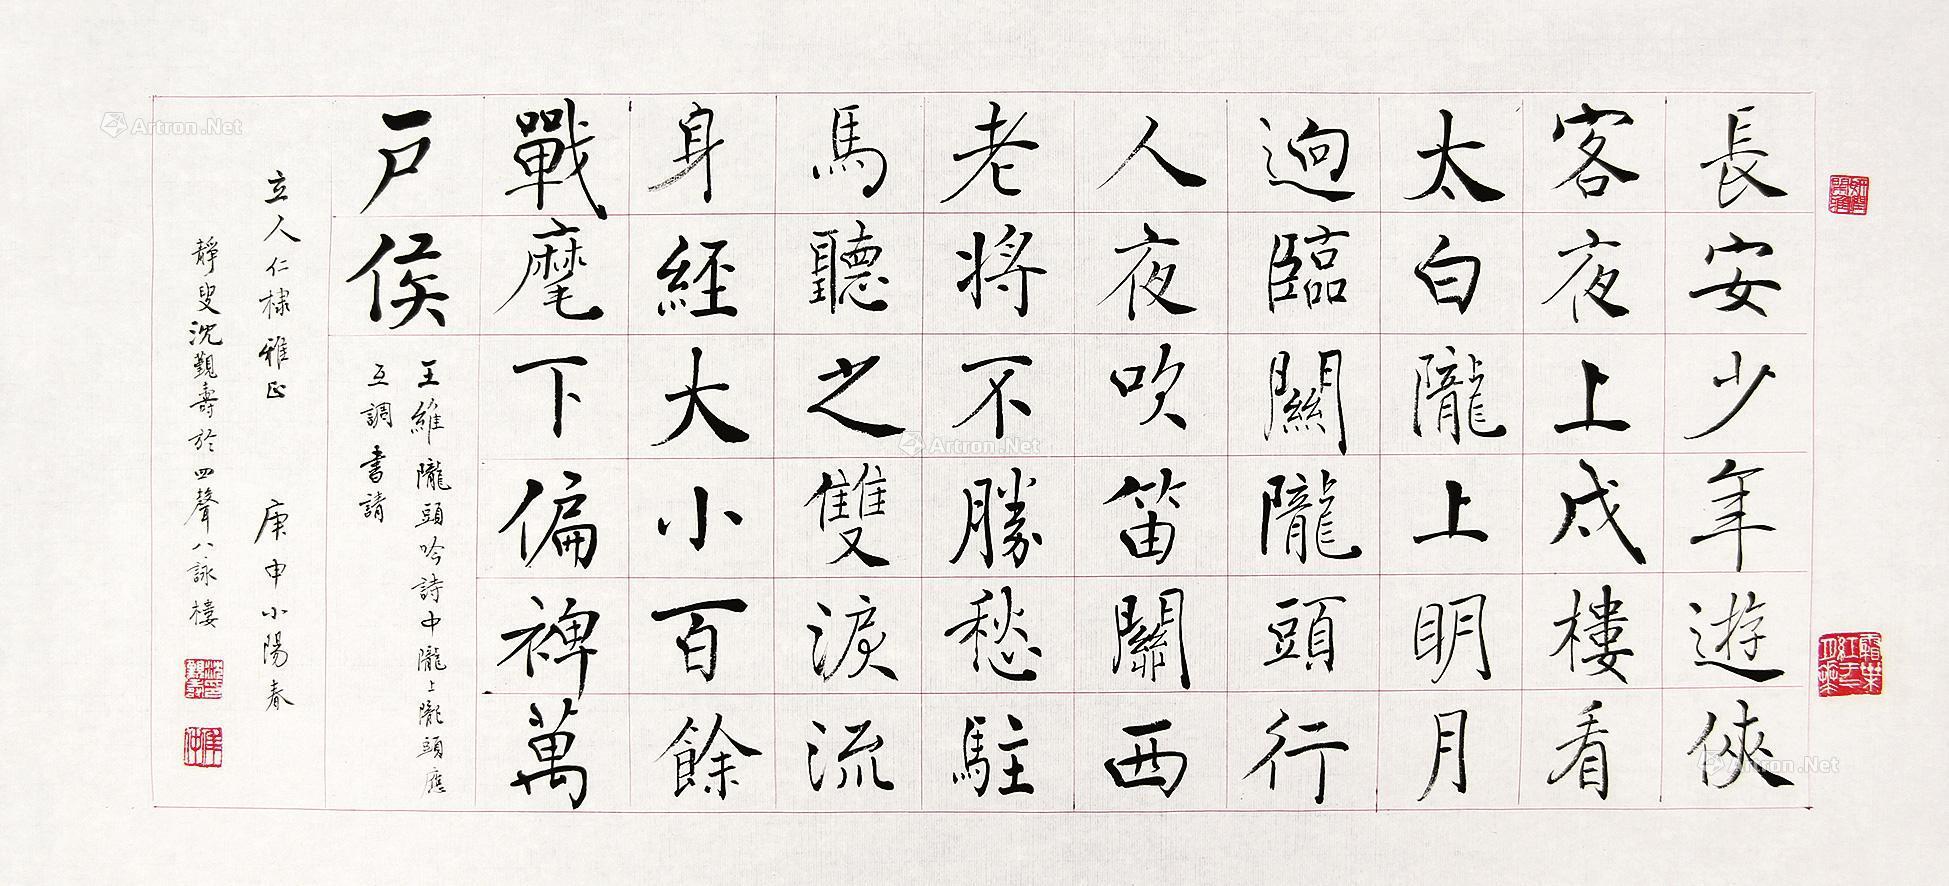 長安少年遊俠
客夜上戍樓看
太白隴上明月
迥臨關隴頭行
人夜吹笛關西
老將不勝愁駐
馬聽之雙淚流
身經大小百餘
戰麾下偏裨萬
戶侯
王維隴頭吟詩中隴上隴頭應
互調書請
立人仁棣雅正 庚申小陽春
靜叟沈覲壽於四聲八詠樓
Artron.Net
Artron.Net
Artron.Net